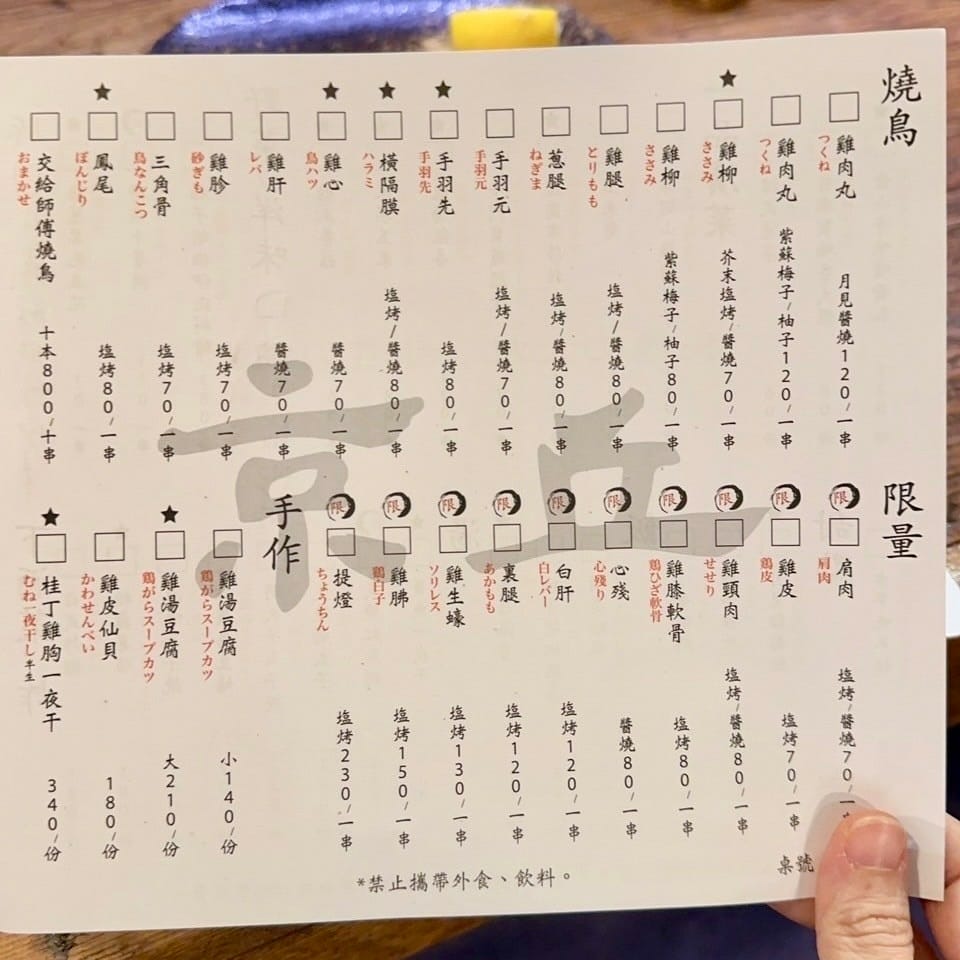 燒鳥
雞肉丸 つくね 月見醬燒120/一串
雞肉丸 つくね 紫蘇梅子/柚子120/一串
★ 雞柳 ささみ 芥末塩烤/醬燒70/一串
雞柳 ささみ 紫蘇梅子/柚子80/一串
雞腿 とりもも 塩烤/醬燒80/一串
蔥腿 ねぎま 塩烤/醬燒80/一串
手羽元 手羽元 塩烤/醬燒70/一串
★ 手羽先 手羽先 塩烤80/一串
★ 橫隔膜 ハラミ 塩烤/醬燒80/一串
★ 雞心 鳥ハツ 醬燒70/一串
雞肝 レバ 醬燒70/一串
雞胗 砂ぎも 塩烤70/一串
三角骨 鳥なんこつ 塩烤70/一串
★ 鳳尾 ぼんじり 塩烤80/一串
交給師傅燒鳥 おまかせ 十本800/十串
限量
限 肩肉 肩肉 塩烤/醬燒70/一串
限 雞皮 鶏皮 塩烤70/一串
限 雞頸肉 せせり 塩烤/醬燒80/一串
限 雞膝軟骨 鶏ひざ軟骨 塩烤80/一串
限 心殘 心残り 醬燒80/一串
限 白肝 白レバー 塩烤120/一串
限 裏腿 あかもも 塩烤120/一串
限 雞生蠔 ソリレス 塩烤130/一串
限 雞肺 鶏白子 塩烤150/一串
限 提燈 ちょうちん 塩烤230/一串
手作
雞湯豆腐 鶏がらスープカツ 小140/份
★ 雞湯豆腐 鶏がらスープカツ 大210/份
雞皮仙貝 かわせんべい 180/份
★ 桂丁雞胸一夜干 むね一夜干し半生 340/份
京丘
桌號
*禁止攜帶外食、飲料。